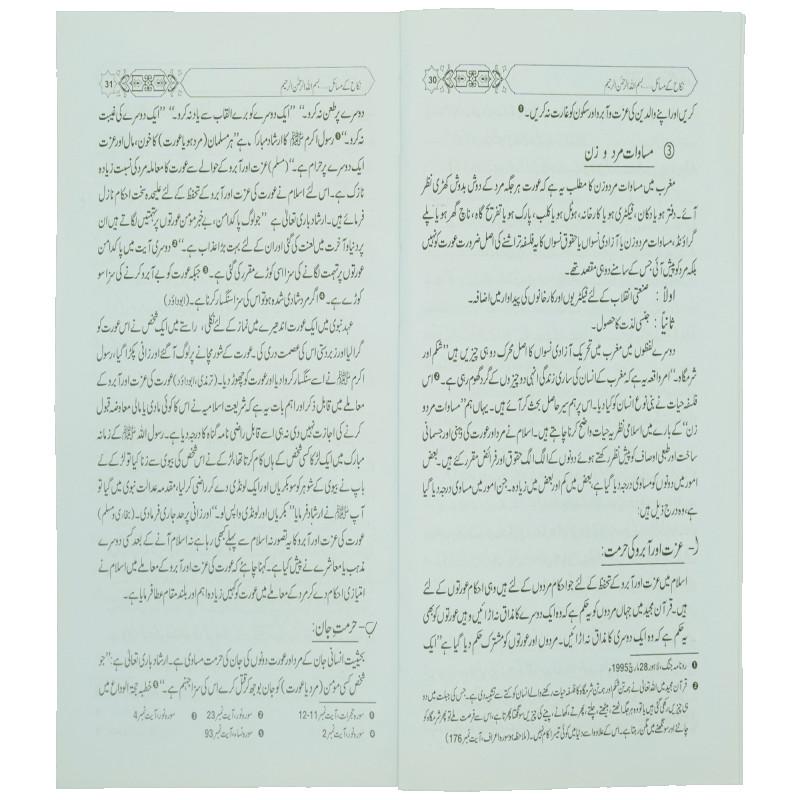 نکاح کے مسائل ..... بسم اللہ الرحمن الرحیم
30
کریں اور اپنے والدین کی عزت و آبرو اور سکون کو غارت نہ کریں۔❶
③ مساوات مرد و زن
مغرب میں مساوات مرد و زن کا مطلب یہ ہے کہ عورت ہر جگہ مرد کے دوش بدوش کھڑی نظر
آئے۔ دفتر ہو یا دکان، فیکٹری ہو یا کارخانہ، ہوٹل ہو یا کلب، پارک ہو یا تفریح گاہ، ناچ گھر ہو یا پلے
گراؤنڈ، مساوات مرد و زن یا آزادی نسواں یا حقوق نسواں کا یہ فلسفہ تراشنے کی اصل ضرورت عورت کو نہیں
بلکہ مرد کو پیش آئی جس کے سامنے دو ہی مقصد تھے۔
اولاً : صنعتی انقلاب کے لئے فیکٹریوں اور کارخانوں کی پیداوار میں اضافہ۔
ثانیاً : جنسی لذت کا حصول۔
دوسرے لفظوں میں مغرب میں تحریک آزادی نسواں کا اصل محرک دو ہی چیزیں ہیں "شکم اور
شرمگاہ۔" امر واقعہ یہ ہے کہ مغرب کے انسان کی ساری زندگی انہی دو چیزوں کے گرد گھوم رہی ہے۔❷ اس
فلسفہ حیات نے بنی نوع انسان کو کیا دیا۔ اس پر ہم سیر حاصل بحث کر آئے ہیں۔ یہاں ہم "مساوات مرد و
زن" کے بارے میں اسلامی نظریہ حیات واضح کرنا چاہتے ہیں۔ اسلام نے مرد اور عورت کی ذہنی اور جسمانی
ساخت اور طبعی اوصاف کو پیش نظر رکھتے ہوئے دونوں کے الگ الگ حقوق اور فرائض مقرر کئے ہیں۔ بعض
امور میں دونوں کو مساوی درجہ دیا گیا ہے، بعض میں کم اور بعض میں زیادہ۔ جن امور میں مساوی درجہ دیا گیا
ہے، وہ درج ذیل ہیں:
ا۔ عزت اور آبرو کی حرمت:
اسلام میں عزت اور آبرو کے تحفظ کے لئے جو احکام مردوں کے لئے ہیں وہی احکام عورتوں کے لئے
ہیں۔ قرآن مجید میں جہاں مردوں کو یہ حکم ہے کہ وہ ایک دوسرے کا مذاق نہ اڑائیں وہیں عورتوں کو بھی
یہ حکم ہے کہ وہ ایک دوسری کا مذاق نہ اڑائیں۔ مردوں اور عورتوں کو مشترک حکم دیا گیا ہے "ایک
❶ روزنامہ جنگ، لاہور، 28 مارچ 1995ء
❷ قرآن مجید میں اللہ تعالیٰ نے ہمہ تن شکم اور ہمہ تن شرمگاہ کا فلسفہ حیات رکھنے والے انسان کو کتے سے تشبیہ دی ہے۔ جس کی جبلت میں دو
ہی چیزیں رکھی گئی ہیں
جانے اور سونگھنے میں مگن رہتا ہے۔ اس کے علاوہ اسے دنیا میں کوئی تیسرا کام نہیں۔ (ملاحظہ ہو سورہ اعراف، آیت نمبر 176)
نکاح کے مسائل ..... بسم اللہ الرحمن الرحیم
31
دوسرے پر طعن نہ کرو۔" "ایک دوسرے کو برے القاب سے یاد نہ کرو۔" "ایک دوسرے کی غیبت
نہ کرو۔"❶ رسول اکرم ﷺ کا ارشاد مبارک ہے "ہر مسلمان (مرد ہو یا عورت) کا خون، مال اور عزت
ایک دوسرے پر حرام ہے۔" (مسلم) عزت اور آبرو کے حوالے سے عورت کا معاملہ مرد کی نسبت زیادہ
نازک ہے۔ اس لئے اسلام نے عورت کی عزت اور آبرو کے تحفظ کے لئے علیحدہ سخت احکام نازل
فرمائے ہیں۔ ارشاد باری تعالیٰ ہے "جو لوگ پاکدامن، بے خبر مومن عورتوں پر تہمتیں لگاتے ہیں ان
پر دنیا و آخرت میں لعنت کی گئی اور ان کے لئے بہت بڑا عذاب ہے۔"❷ دوسری آیت میں پاکدامن
عورتوں پر تہمت لگانے کی سزا اسی کوڑے مقرر کی گئی ہے۔❸ جبکہ عورت کو بے آبرو کرنے کی سزا سو
کوڑے ہے۔❹ اگر مرد شادی شدہ ہو تو اس کی سزا سنگسار کرنا ہے۔ (ابوداؤد)
عہد نبوی میں ایک عورت اندھیرے میں نماز کے لئے نکلی، راستے میں ایک شخص نے اس عورت کو
گرا لیا اور زبردستی اس کی عصمت دری کی۔ عورت کے شور مچانے پر لوگ آگئے اور زانی پکڑا گیا، رسول
اکرم ﷺ نے اسے سنگسار کروا دیا اور عورت کو چھوڑ دیا۔ (ترمذی، ابوداؤد) عورت کی عزت اور آبرو کے
معاملے میں قابل ذکر اور اہم بات یہ ہے کہ شریعت اسلامیہ نے اس کا کوئی مادی یا مالی معاوضہ قبول
کرنے کی اجازت نہیں دی نہ ہی اسے قابل راضی نامہ گناہ کا درجہ دیا ہے۔ رسول اللہ ﷺ کے زمانہ
مبارک میں ایک لڑکا کسی شخص کے ہاں کام کرتا تھا، لڑکے نے اس شخص کی بیوی سے زنا کیا تو لڑکے کے
باپ نے بیوی کے شوہر کو سو بکریاں اور ایک لونڈی دے کر راضی کر لیا، مقدمہ عدالت نبوی میں گیا تو
آپ ﷺ نے ارشاد فرمایا "بکریاں اور لونڈی واپس لو۔" اور زانی پر حد جاری فرما دی۔ (بخاری و مسلم)
عورت کی عزت اور آبرو کا یہ تصور نہ اسلام سے پہلے بھی رہا ہے نہ اسلام آنے کے بعد کسی دوسرے
مذہب یا معاشرے نے پیش کیا ہے۔ کہنا چاہئے کہ عورت کی عزت اور آبرو کے معاملے میں اسلام نے
امتیازی احکام دے کر مرد کے معاملے میں عورت کو کہیں زیادہ اہم اور بلند مقام عطا فرمایا ہے۔
ب۔ حرمت جان:
بحیثیت انسانی جان کے مرد اور عورت دونوں کی جان کی حرمت مساوی ہے۔ ارشاد باری تعالیٰ ہے: "جو
شخص کسی مومن (مرد یا عورت) کو جان بوجھ کر قتل کرے اس کی سزا جہنم ہے۔"❺ خطبہ حجۃ الوداع میں
❶ سورہ حجرات، آیت نمبر 11-12 ❷ سورہ نور، آیت نمبر 23 ❸ سورہ نور، آیت نمبر 4
❹ سورہ نور، آیت نمبر 2 ❺ سورہ نساء، آیت نمبر 93